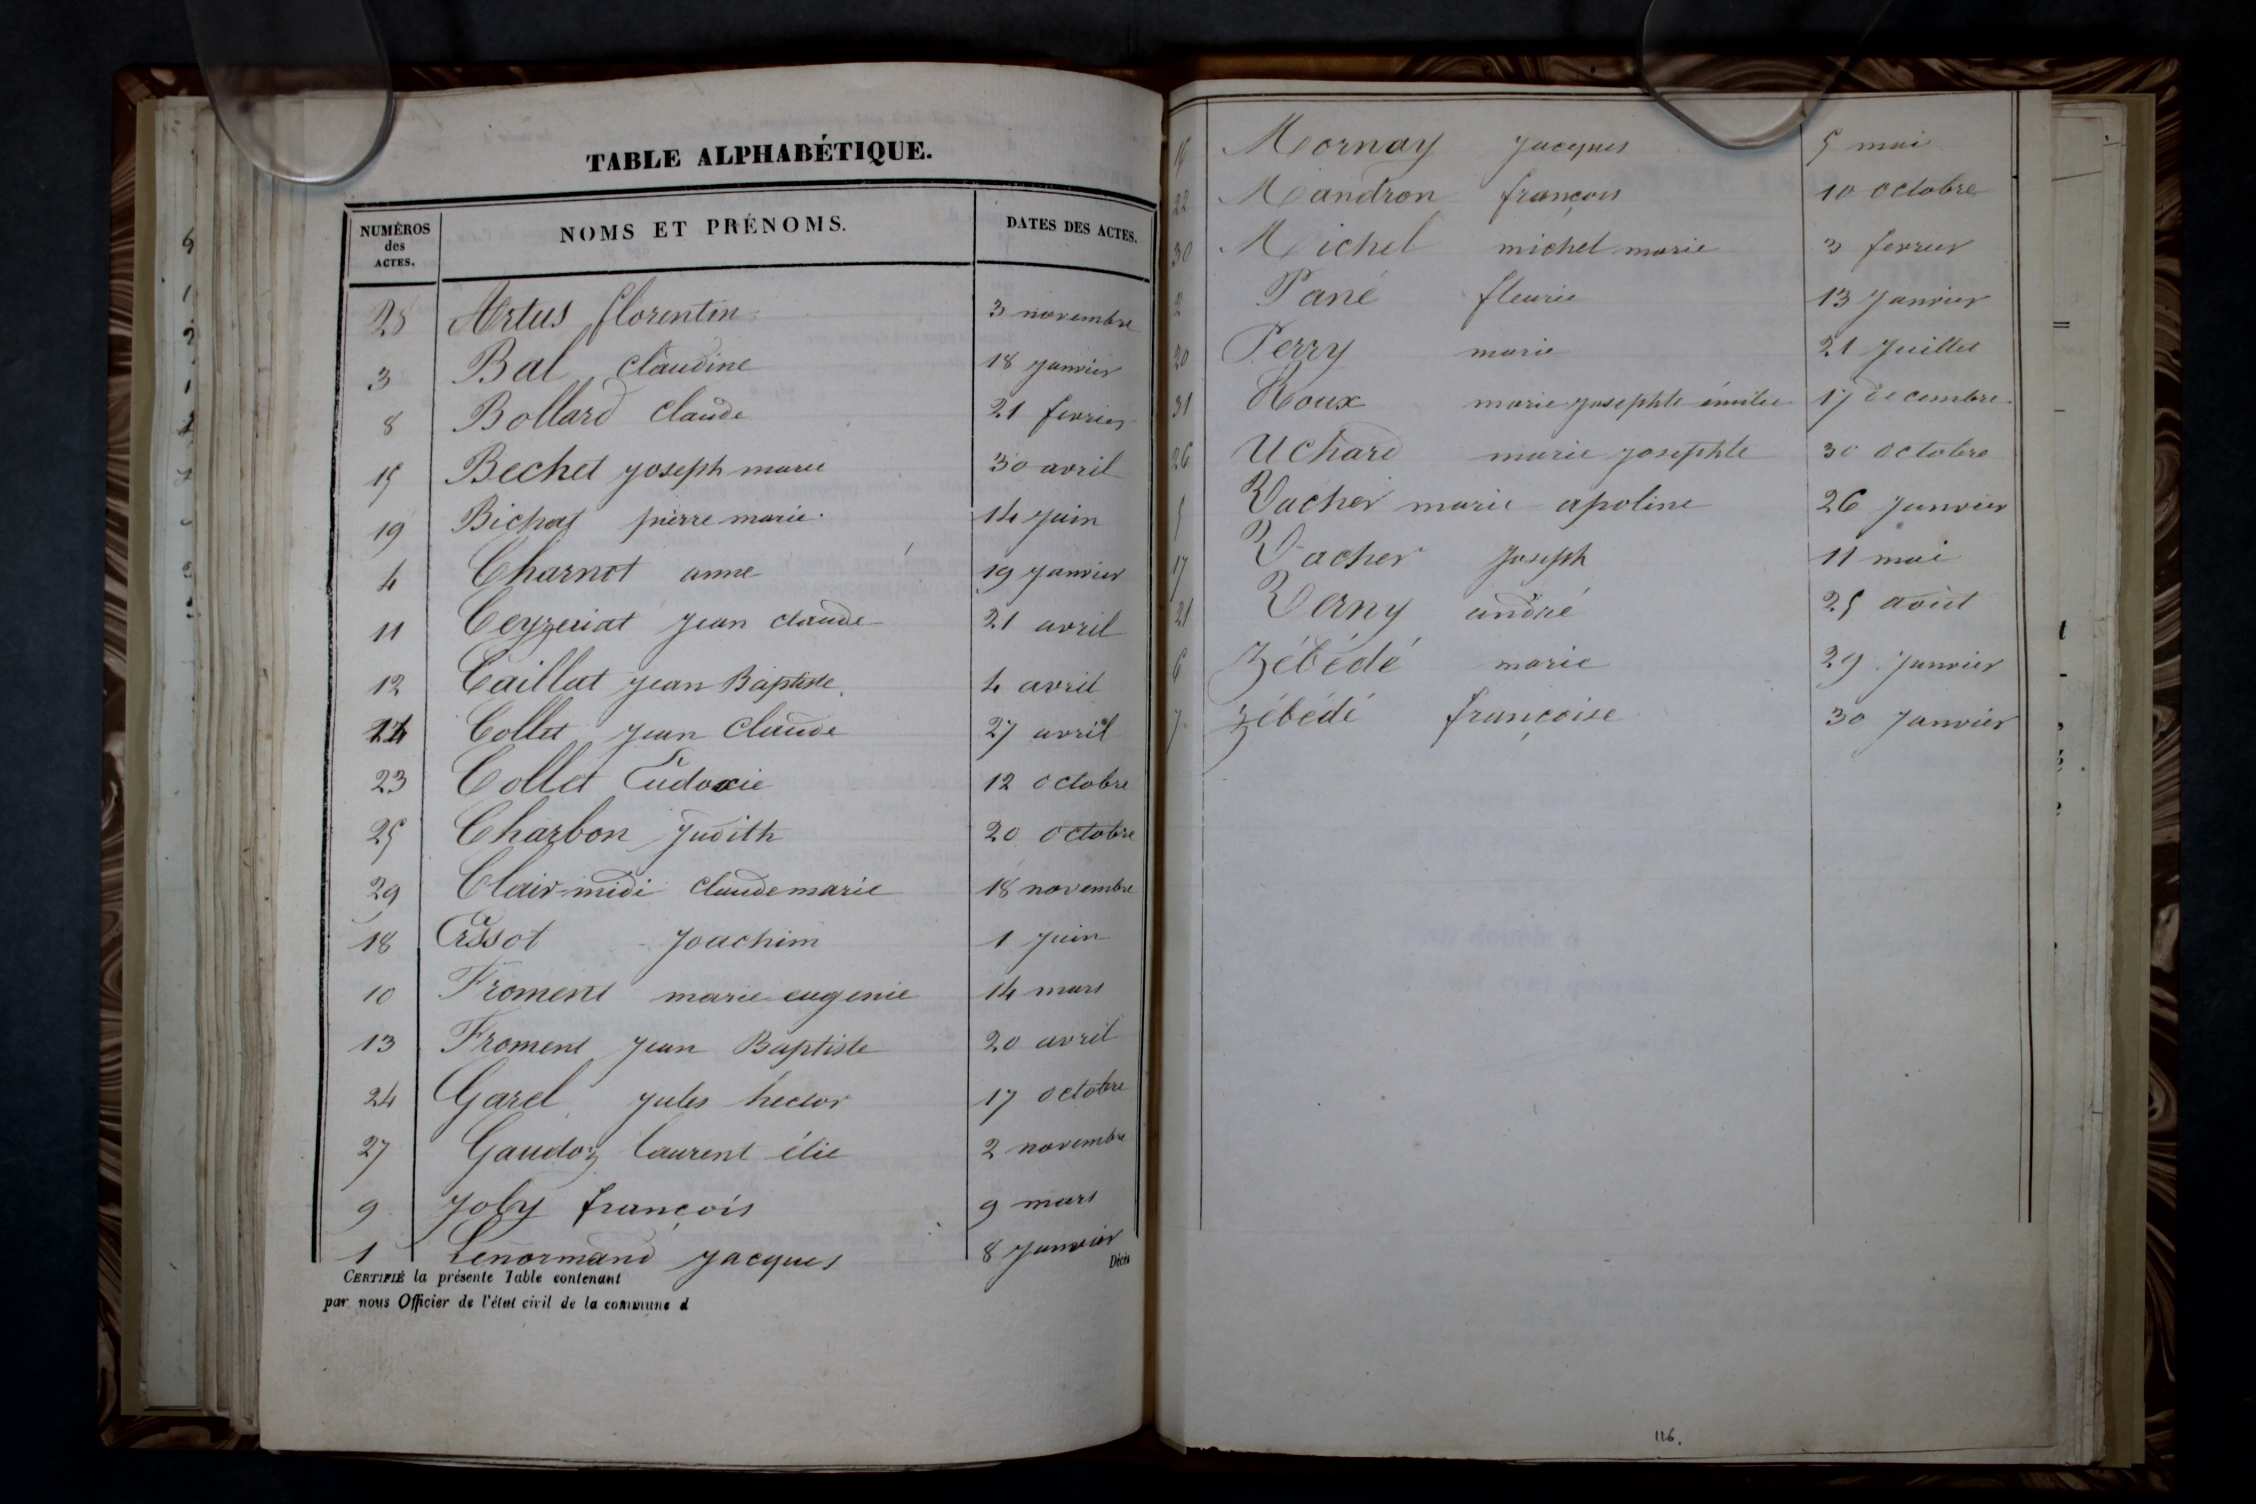 TABLE ALPHABÉTIQUE.
NUMÉROS des ACTES. NOMS ET PRÉNOMS. DATES DES ACTES.
28 Artus florentin 3 novembre
3 Bal claudine 18 janvier
8 Bollard claude 21 fevrier
15 Bechet joseph marie 30 avril
19 Bichat pierre marie 14 juin
4 Charnot anne 19 janvier
11 Ceyzeriat jean claude 21 avril
12 Caillat jean Baptiste 4 avril
14 Collet jean claude 27 avril
23 Collet Eudoxie 12 octobre
25 Charbon Judith 20 octobre
29 Clair-midi claude marie 18 novembre
18 Joachim 1 juin
10 Froment marie eugenie 14 mars
13 Froment jean Baptiste 20 avril
24 Garel jules hector 17 octobre
27 Gaudoz laurent élie 2 novembre
9 Joly françois 9 mars
1 Lenormand jacques 8 janvier
CERTIFIÉ la présente Table contenant Décès
par nous Officier de l'état civil de la commune d
16 Mornay jacques 5 mai
22 Mandron françois 10 octobre
30 Michel michel marie 3 fevrier
2 Pané fleurie 13 janvier
20 Perry marie 21 juillet
31 Roux marie josephte émilie 17 decembre
26 Uchard marie josephte 30 octobre
5 Vacher marie apoline 26 janvier
17 Vacher joseph 11 mai
21 Verny andré 25 août
6 Zébédé marie 29 janvier
7 Zébédé françoise 30 janvier
116.